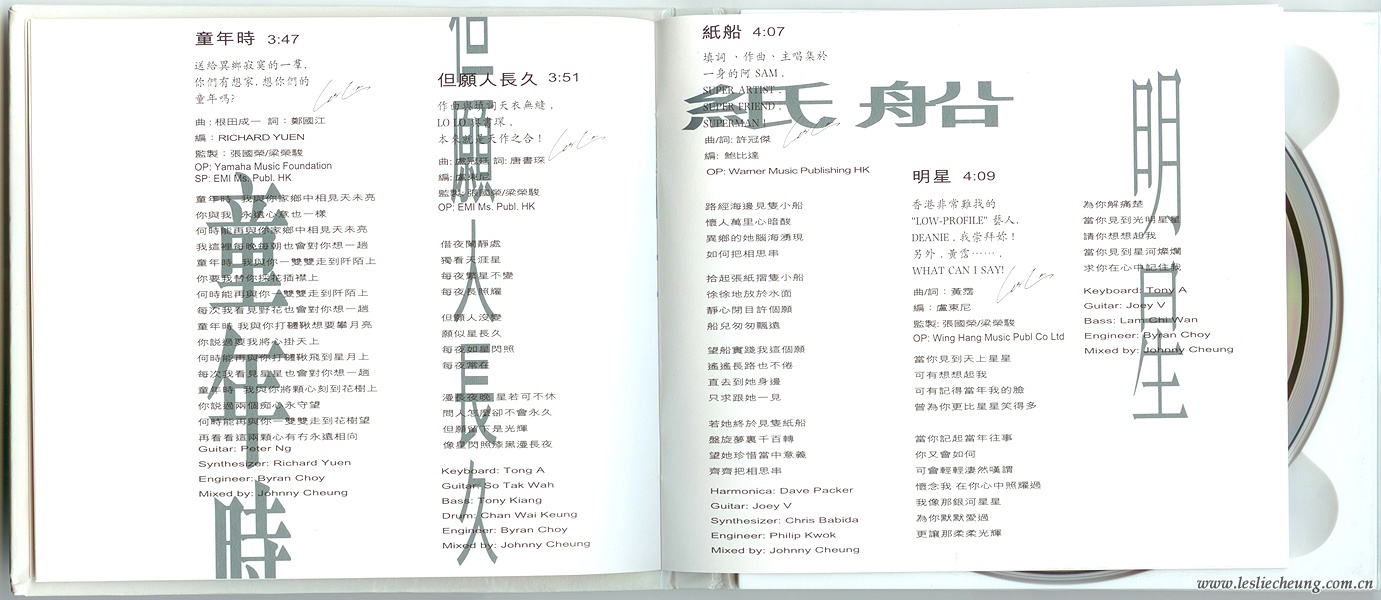 童年時 3:47
送給異鄉寂寞的一羣,
你們有想家,想你們的
童年嗎?
曲:根田成一 詞:鄭國江
編:RICHARD YUEN
監製:張國榮/梁榮駿
OP: Yamaha Music Foundation
SP: EMI Ms. Publ. HK
童年時 我與你家鄉中相見天未亮
你與我 永遠心意也一樣
何時能再與你家鄉中相見天未亮
我這裡每晚每朝也會對你想一趟
童年時 我與你一雙雙走到阡陌上
你要我替你採花插襟上
何時能再與你一雙雙走到阡陌上
每次我看見野花也會對你想一趟
童年時 我與你打鞦韆想要攀月亮
你說過要我將心掛天上
何時能再與你打鞦韆飛到星月上
每次我看見星星也會對你想一趟
童年時 我與你將顆心刻到花樹上
你說過兩個痴心永守望
何時能再與你一雙雙走到花樹望
再看看這兩顆心有冇永遠相向
Guitar: Peter Ng
Synthesizer: Richard Yuen
Engineer: Byran Choy
Mixed by: Johnny Cheung
童年時
但願人長久 3:51
作曲與填詞天衣無縫,
本來就是天作之合!
曲:盧冠廷 詞:唐書琛
編:盧東尼
監製:張國榮/梁榮駿
OP: EMI Ms. Publ. HK
借夜闌靜處
獨看天涯星
每夜繁星不變
每夜長照耀
但願人沒變
願似星長久
每夜如星閃照
每夜常在
漫長夜晚 星若可不休
問人怎麼卻不會永久
但願留下是光輝
像星閃照漆黑漫長夜
Keyboard: Tong A
Guitar: So Tak Wah
Bass: Tony Kiang
Drum: Chan Wai Keung
Engineer: Byran Choy
Mixed by: Johnny Cheung
但願人長久
紙船 4:07
填詞、作曲、主唱集於
一身的阿 SAM,
SUPER ARTIST,
SUPER FRIEND,
SUPERMAN!
曲/詞:許冠傑
編:鮑比達
OP: Warner Music Publishing HK
紙船
路經海邊見隻小船
懷人萬里心暗酸
異鄉的她腦海湧現
如何把相思串
拾起張紙摺隻小船
徐徐地放於水面
靜心閉目許個願
船兒匆匆飄遠
望船實踐我這個願
遙遙長路也不倦
直去到她身邊
只求跟她一見
若她終於見隻紙船
盤旋夢裏千百轉
望她珍惜當中意義
齊齊把相思串
Harmonica: Dave Packer
Guitar: Joey V
Synthesizer: Chris Babida
Engineer: Philip Kwok
Mixed by: Johnny Cheung
明星 4:09
香港非常難找的
"LOW-PROFILE" 藝人,
DEANIE,我崇拜妳!
另外,黃霑……,
WHAT CAN I SAY!
曲/詞:黃霑
編:盧東尼
監製:張國榮/梁榮駿
OP: Wing Hang Music Publ Co Ltd
當你見到天上星星
可有想想起我
可有記得當年我的臉
曾為你更比星星笑得多
當你記起當年往事
你又會如何
可會輕輕淒然嘆謂
懷念我 在你心中照耀過
我像那銀河星星
為你默默愛過
更讓那柔柔光輝
為你解痛楚
當你見到光明星星
請你想想起我
當你見到星河燦爛
求你在心中記住我
Keyboard: Tony A
Guitar: Joey V
Bass: Lam Chi Wan
Engineer: Byran Choy
Mixed by: Johnny Cheung
明星
www.lesliecheung.com.cn